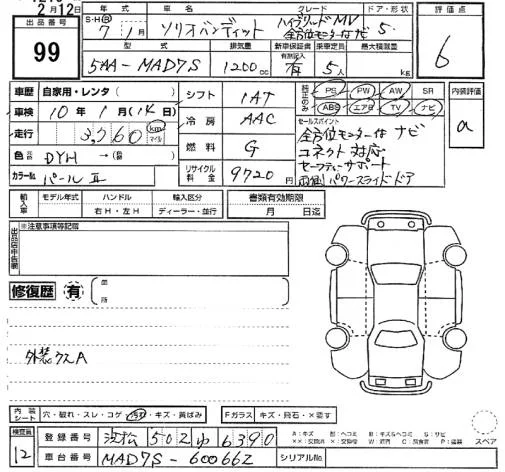 2月12日
出品番号 99
S・H・R 年式 7年1月
車名 ソリオバンディット
グレード ハイブリッドMV 全方位モニター付ナビ
ドア・形状 5
評価点 6
型式 5AA-MAD7S
排気量 1200cc
新車保証書 有 有無記入
乗車定員 5人
最大積載量 kg
車歴 自家用・レンタ
車検 10年1月(14日)
走行 3,760 km マイル
色 DYH →( 替)
カラーNo. パールⅡ
シフト 1AT
冷房 AAC
燃料 G
リサイクル料金 9720
純正のみ PS PW AW SR
ABS エアB TV ナビ
セールスポイント
全方位モニター付ナビ
コネクト対応
セーフティーサポート
両側パワースライドドア
内装評価 a
輸入車 モデル年式 年 ハンドル 右H・左H 輸入区分 ディーラー・並行
書類有効期限 月 日迄
出品店申告欄 ※注意事項等記載
修復歴 有 箇所
外装ウスA
内装シート 穴・破れ・スレ・コゲ・汚れ・キズ・黄ばみ
Fガラス キズ・飛石・×要す
検査員 12
登録番号 浜松502ゆ6390
車台番号 MAD7S-600662
シリアルNo.
A:キズ
スペア